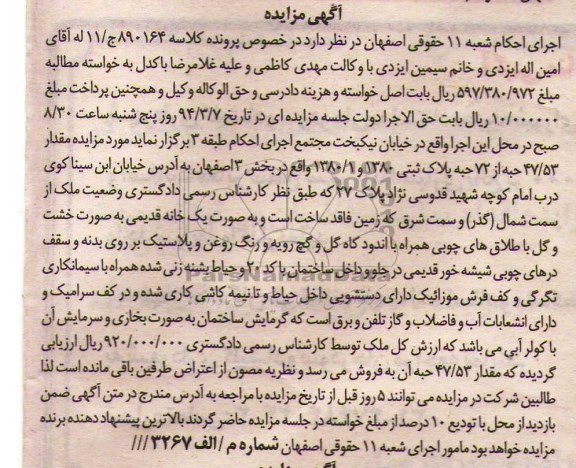 آگهی مزایده
اجرای احکام شعبه ۱۱ حقوقی اصفهان در نظر دارد در خصوص پرونده کلاسه ۸۹۰۱۶۴ج/۱۱ له آقای
امین اله ایزدی و خانم سیمین ایزدی با وکالت مهدی کاظمی و علیه غلامرضا باکدل به خواسته مطالبه
مبلغ ۵۹۷/۳۸۰/۹۷۲ ریال بابت اصل خواسته و هزینه دادرسی و حق الوکاله وکیل و همچنین پرداخت مبلغ
۱۰/۰۰۰۰۰۰ ریال بابت حق الاجرا دولت جلسه مزایده ای در تاریخ ۹۴/۳/۷ روز پنج شنبه ساعت ۸/۳۰
صبح در محل این اجرا واقع در خیابان نیکبخت مجتمع اجرای احکام طبقه ۳ برگزار نماید مورد مزایده مقدار
۴۷/۵۳ حبه از ۷۲ حبه پلاک ثبتی ۱۳۸۰ و ۱۳۸۰/۱ واقع در بخش ۳ اصفهان به آدرس خیابان ابن سینا کوی
درب امام کوچه شهید قدوسی نژاد پلاک ۲۷ که طبق نظر کارشناس رسمی دادگستری وضعیت ملک از
سمت شمال (گذر) و سمت شرق که زمین فاقد ساخت است و به صورت یک خانه قدیمی به صورت خشت
و گل با طلاق های چوبی همراه با اندود کاه گل و گچ رویه و رنگ روغن و پلاستیک بر روی بدنه و سقف
درهای چوبی شیشه خور قدیمی در جلو و داخل ساختمان با کد ۲۰ و حیاط پشینه زنی شده همراه با سیمانکاری
تگرگی و کف فرش موزائیک دارای دستشویی داخل حیاط و تا نیمه کاشی کاری شده و در کف سرامیک و
دارای انشعابات آب و فاضلاب و گاز تلفن و برق است که گرمایش ساختمان به صورت بخاری و سرمایش آن
با کولر آبی می باشد که ارزش کل ملک توسط کارشناس رسمی دادگستری ۹۲۰/۰۰۰/۰۰۰ ریال ارزیابی
گردیده که مقدار ۴۷/۵۳ حبه آن به فروش می رسد و نظریه مصون از اعتراض طرفین باقی مانده است لذا
طالبین شرکت در مزایده می توانند ۵ روز قبل از تاریخ مزایده با مراجعه به آدرس مندرج در متن آگهی ضمن
بازدید از محل با تودیع ۱۰ درصد از مبلغ خواسته در جلسه مزایده حاضر گردند بالاترین پیشنهاد دهنده برنده
مزایده خواهد بود مامور اجرای شعبه ۱۱ حقوقی اصفهان شماره م / الف ۳۲۶۷ ///